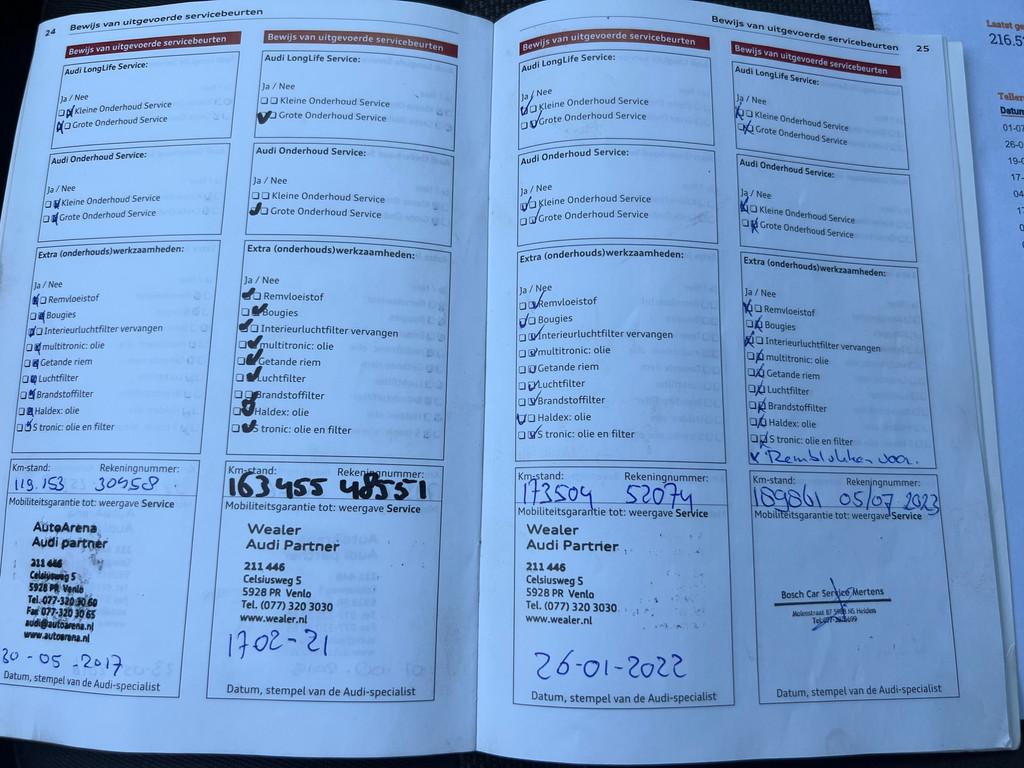 24 Bewijs van uitgevoerde servicebeurten
Bewijs van uitgevoerde servicebeurten
Audi LongLife Service:
Ja / Nee
Kleine Onderhoud Service
Grote Onderhoud Service
Audi Onderhoud Service:
Ja / Nee
Kleine Onderhoud Service
Grote Onderhoud Service
Extra (onderhouds)werkzaamheden:
Ja / Nee
Remvloeistof
Bougies
Interieurluchtfilter vervangen
multitronic: olie
Getande riem
Luchtfilter
Brandstoffilter
Haldex: olie
S tronic: olie en filter
Km-stand: Rekeningnummer:
119.153 30958
Mobiliteitsgarantie tot: weergave Service
AutoArena
Audi partner
211 446
Celsiusweg 5
5928 PR Venlo
Tel. 077-320 30 60
Fax 077-320 30 65
audi@autoarena.nl
www.autoarena.nl
30-05-2017
Datum, stempel van de Audi-specialist
Bewijs van uitgevoerde servicebeurten
Audi LongLife Service:
Ja / Nee
Kleine Onderhoud Service
Grote Onderhoud Service
Audi Onderhoud Service:
Ja / Nee
Kleine Onderhoud Service
Grote Onderhoud Service
Extra (onderhouds)werkzaamheden:
Ja / Nee
Remvloeistof
Bougies
Interieurluchtfilter vervangen
multitronic: olie
Getande riem
Luchtfilter
Brandstoffilter
Haldex: olie
S tronic: olie en filter
Km-stand: Rekeningnummer:
163455 48551
Mobiliteitsgarantie tot: weergave Service
Wealer
Audi Partner
211 446
Celsiusweg 5
5928 PR Venlo
Tel. (077) 320 3030
www.wealer.nl
1702-21
Datum, stempel van de Audi-specialist
Bewijs van uitgevoerde servicebeurten 25
Bewijs van uitgevoerde servicebeurten
Audi LongLife Service:
Ja / Nee
Kleine Onderhoud Service
Grote Onderhoud Service
Audi Onderhoud Service:
Ja / Nee
Kleine Onderhoud Service
Grote Onderhoud Service
Extra (onderhouds)werkzaamheden:
Ja / Nee
Remvloeistof
Bougies
Interieurluchtfilter vervangen
multitronic: olie
Getande riem
Luchtfilter
Brandstoffilter
Haldex: olie
S tronic: olie en filter
Km-stand: Rekeningnummer:
173504 52074
Mobiliteitsgarantie tot: weergave Service
Wealer
Audi Partner
211 446
Celsiusweg 5
5928 PR Venlo
Tel. (077) 320 3030
www.wealer.nl
26-01-2022
Datum, stempel van de Audi-specialist
Bewijs van uitgevoerde servicebeurten
Audi LongLife Service:
Ja / Nee
Kleine Onderhoud Service
Grote Onderhoud Service
Audi Onderhoud Service:
Ja / Nee
Kleine Onderhoud Service
Grote Onderhoud Service
Extra (onderhouds)werkzaamheden:
Ja / Nee
Remvloeistof
Bougies
Interieurluchtfilter vervangen
multitronic: olie
Getande riem
Luchtfilter
Brandstoffilter
Haldex: olie
S tronic: olie en filter
x Remblokken voor.
Km-stand: Rekeningnummer:
189861 05/07 2023
Mobiliteitsgarantie tot: weergave Service
Bosch Car Service Mertens
Molenstraat 87 NS Helden
Datum, stempel van de Audi-specialist
Laatst
216.5
Datum
01-07
26-0